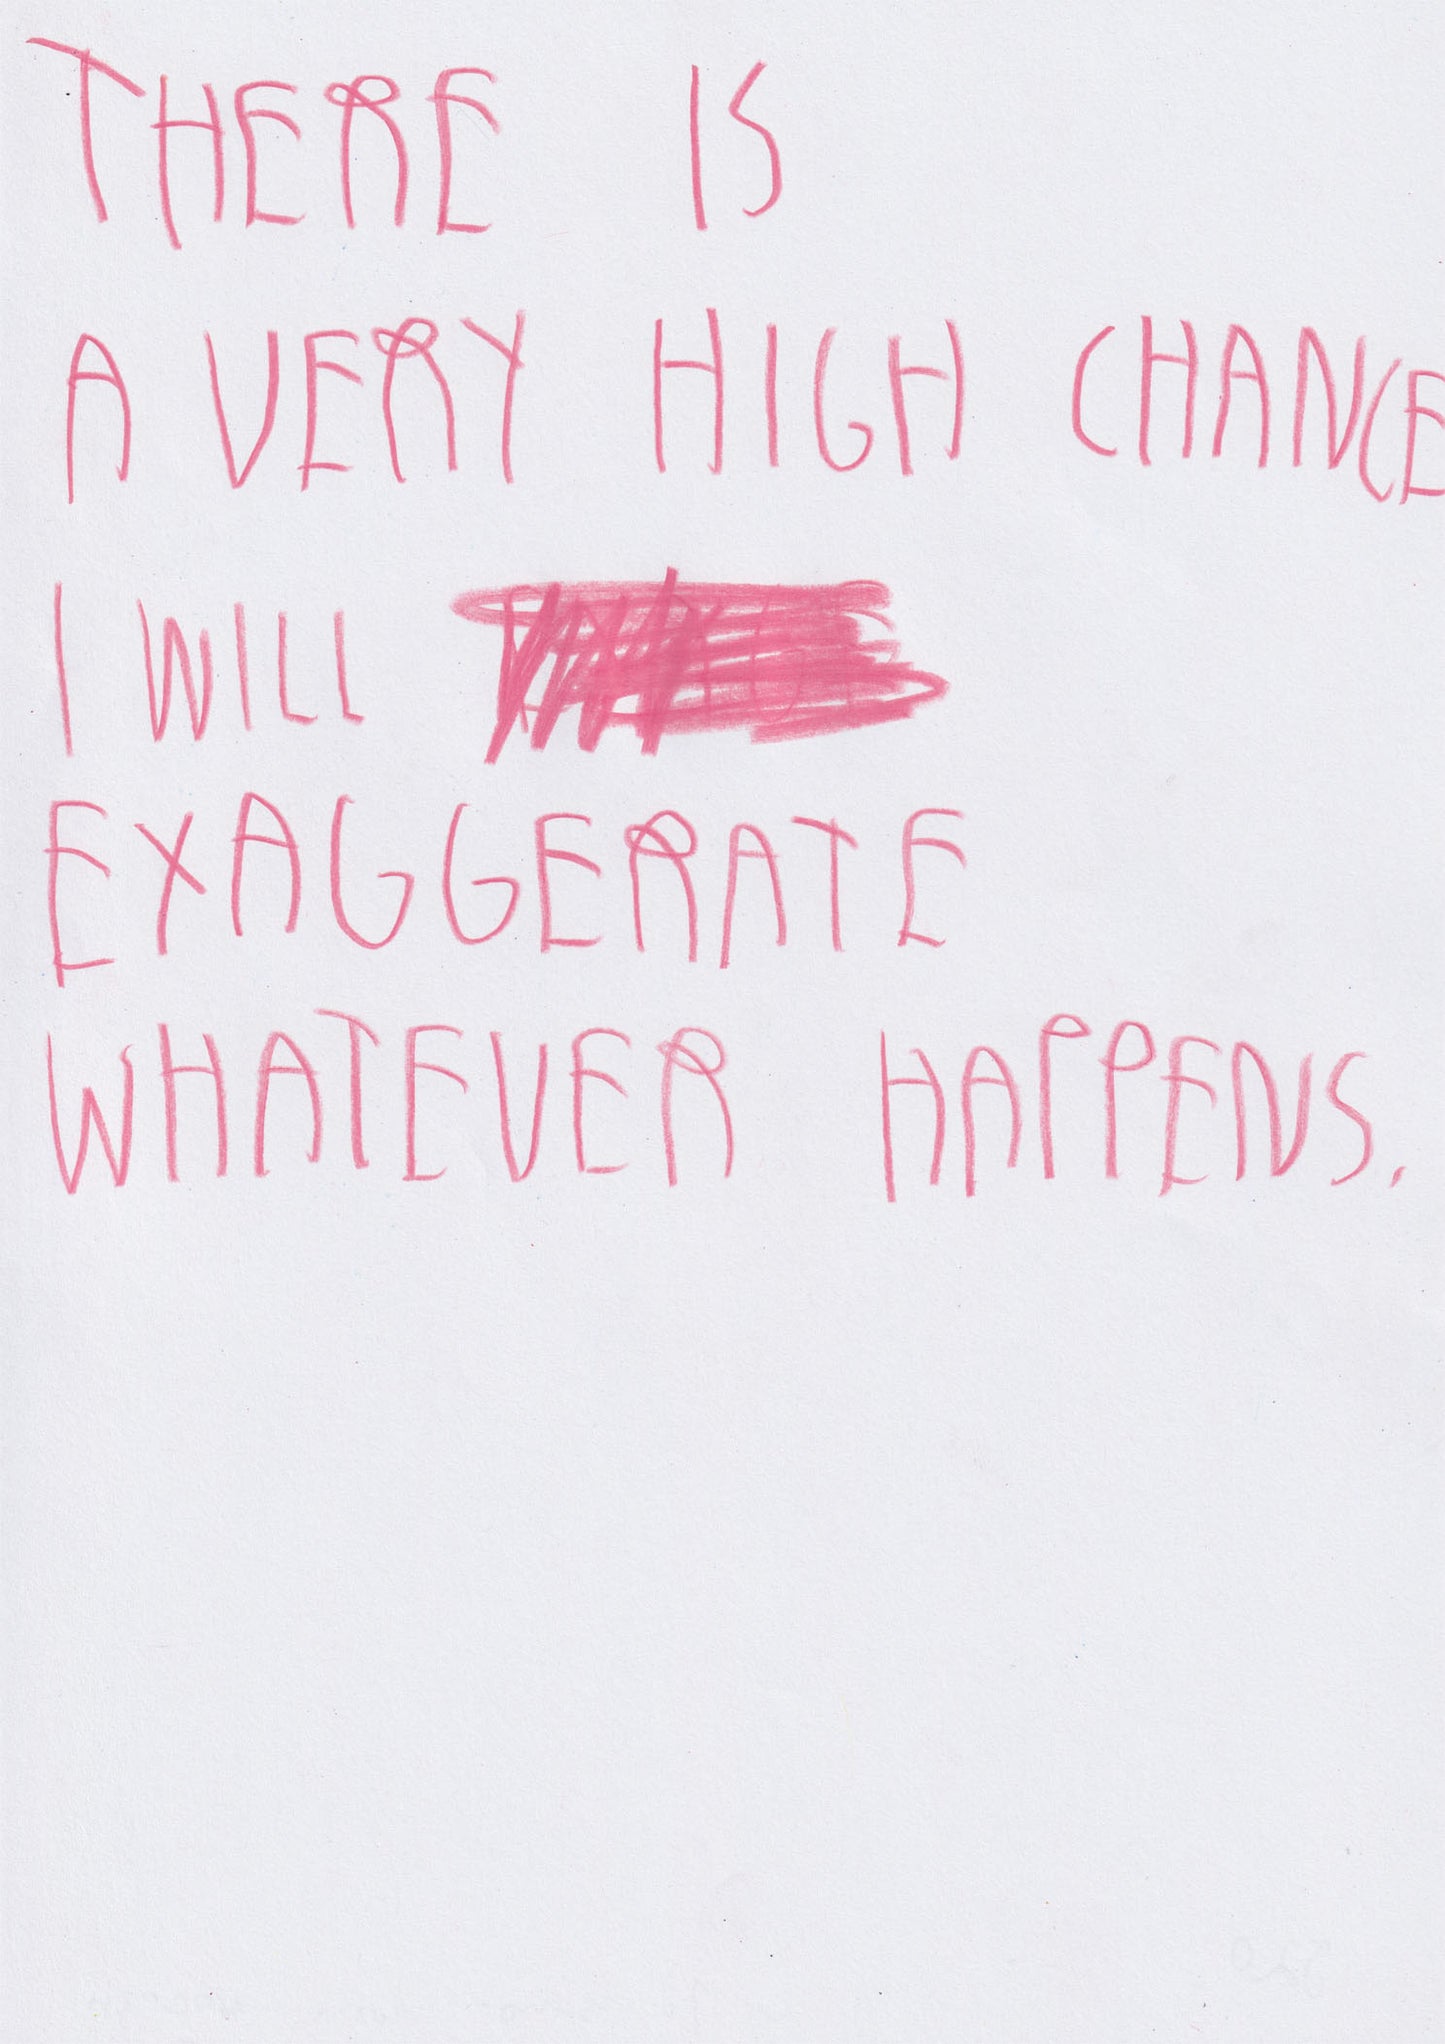 THERE IS
A VERY HIGH CHANCE
I WILL
EXAGGERATE
WHATEVER HAPPENS.